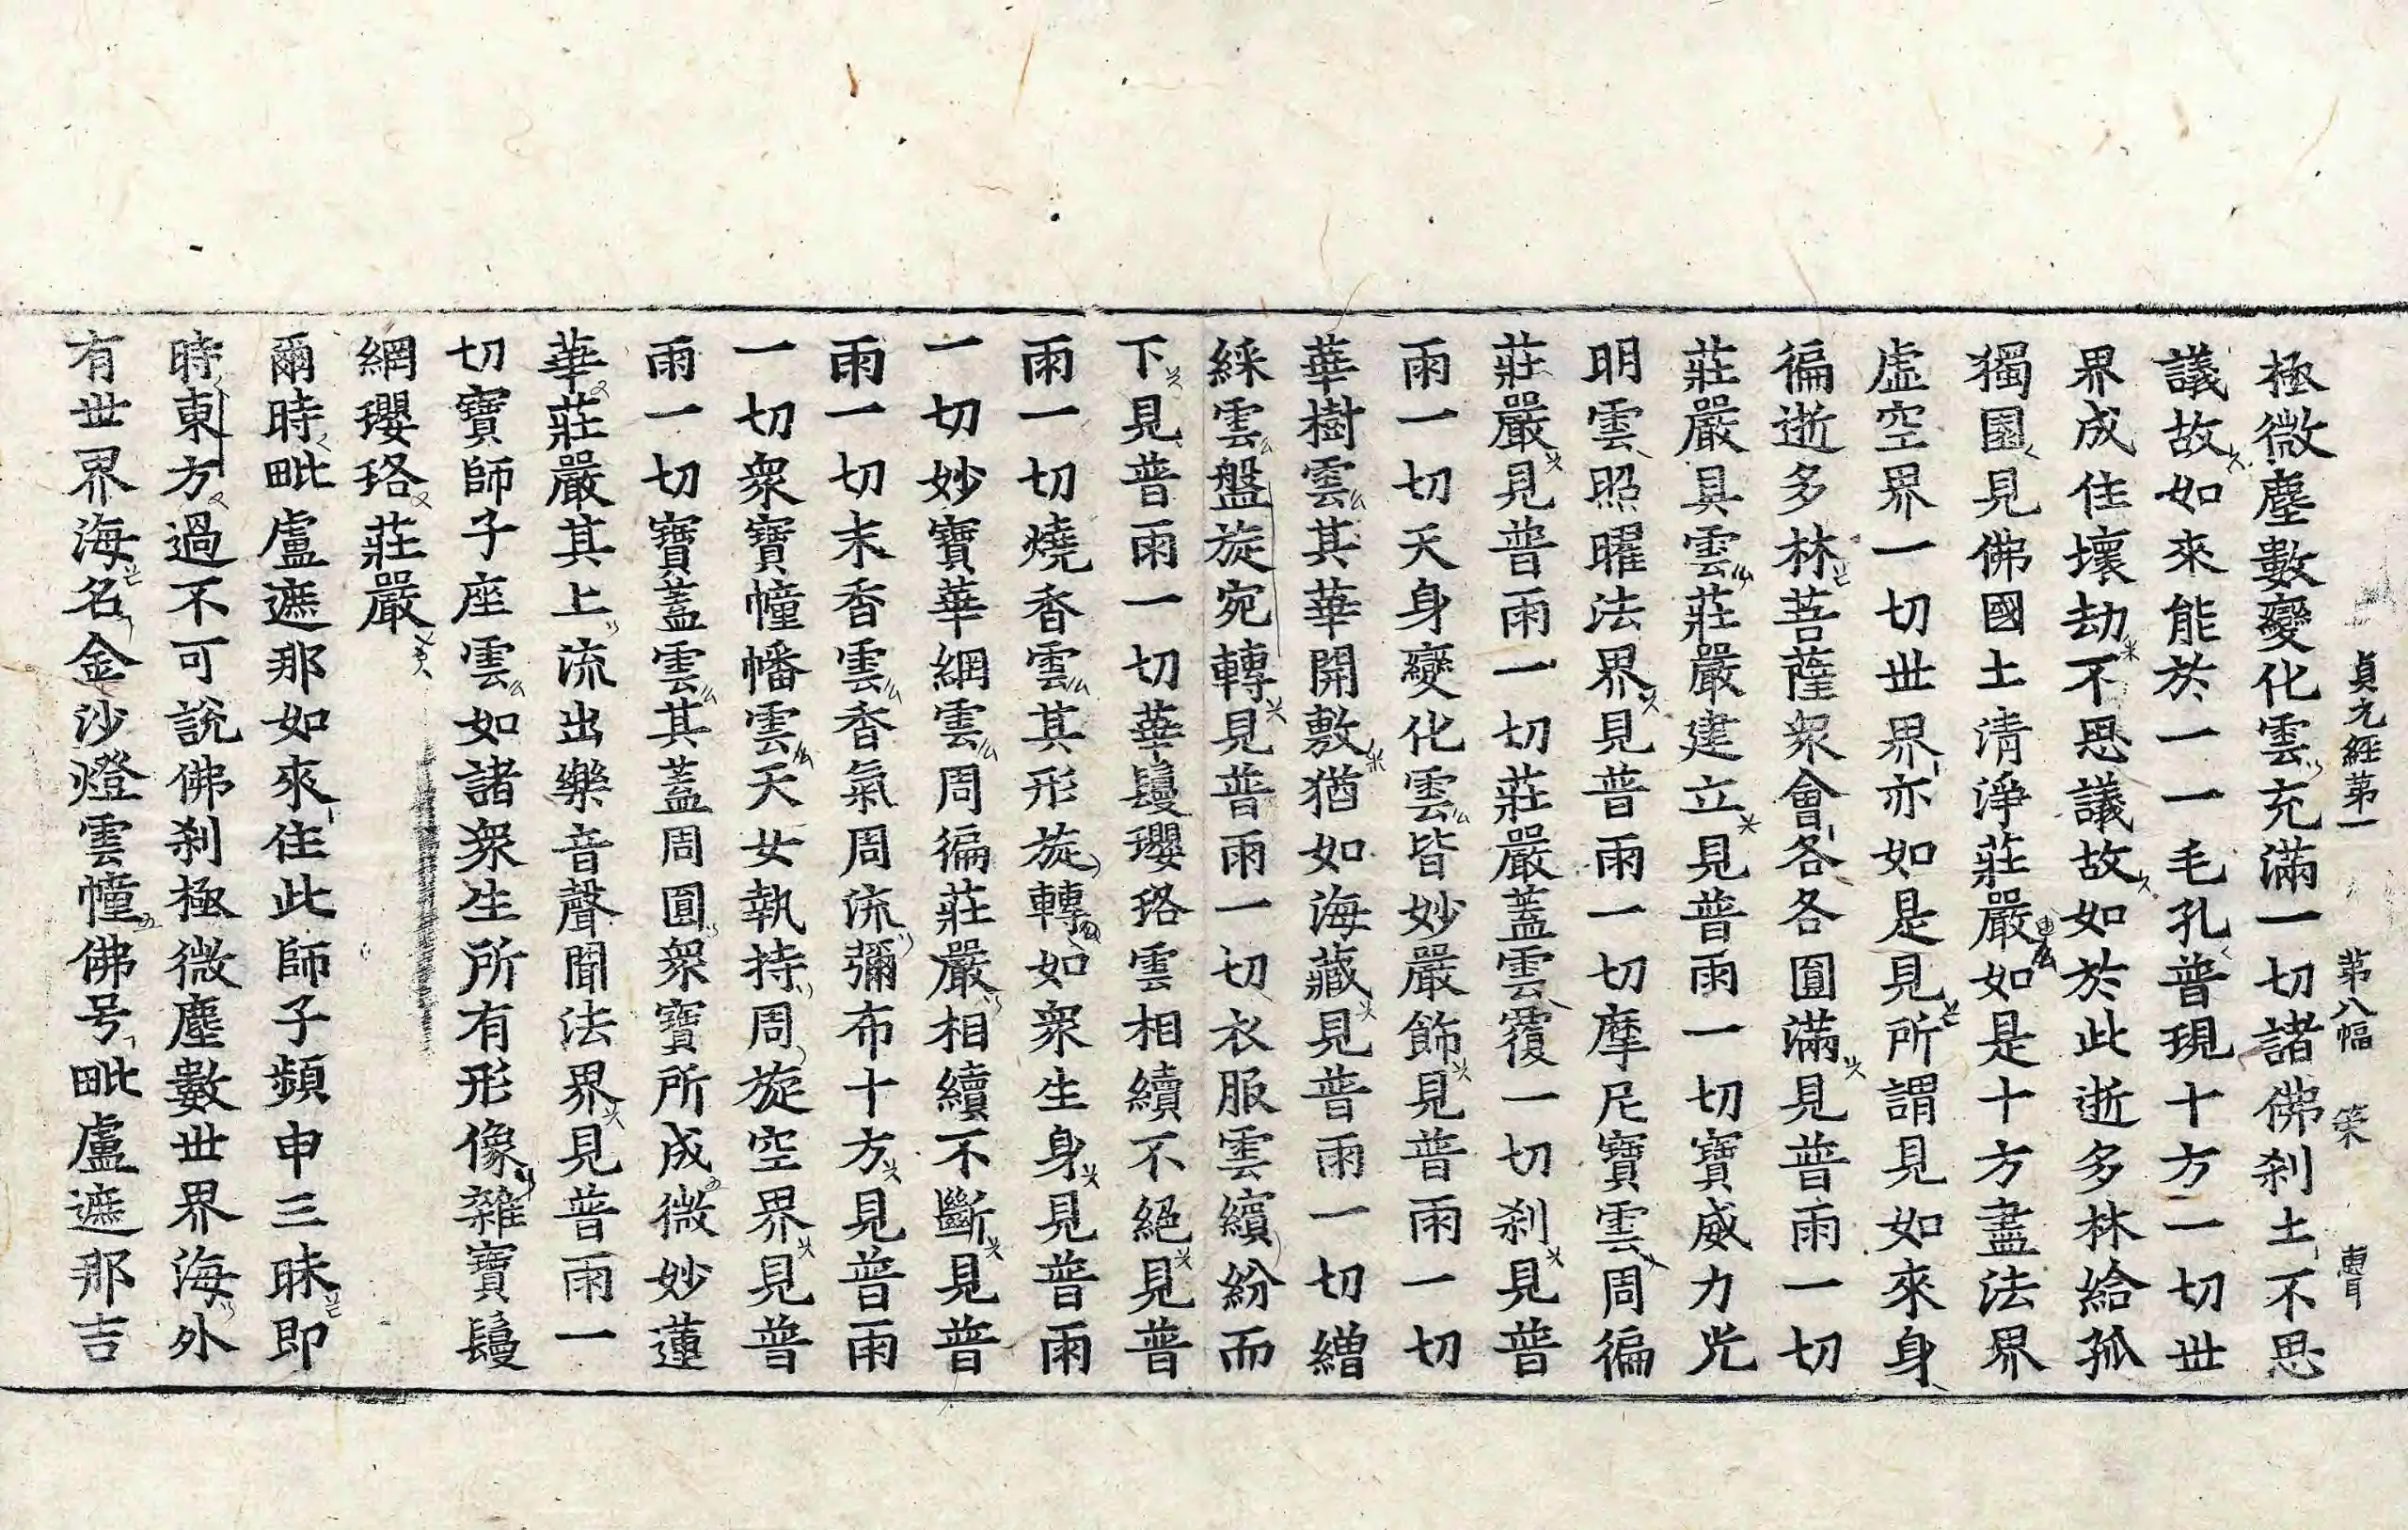 貞元經第一 第八幅 策
極微塵數變化雲充滿一切諸佛刹土不思
議故如來能於一一毛孔普現十方一切世
界成住壞劫不思議故如於此逝多林給孤
獨園見佛國土清淨莊嚴如是十方盡法界
虛空界一切世界亦如是見所謂見如來身
徧逝多林菩薩衆會各各圓滿見普雨一切
莊嚴具雲莊嚴建立見普雨一切寶威力光
明雲照曜法界見普雨一切摩尼寶雲周徧
莊嚴見普雨一切莊嚴蓋雲覆一切刹見普
雨一切天身變化雲皆妙嚴飾見普雨一切
華樹雲其華開敷猶如海藏見普雨一切繒
綵雲盤旋宛轉見普雨一切衣服雲繽紛而
下見普雨一切華鬘瓔珞雲相續不絕見普
雨一切燒香雲其形旋轉如衆生身見普雨
一切妙寶華網雲周徧莊嚴相續不斷見普
雨一切末香雲香氣周流彌布十方見普雨
一切衆寶幢幡雲天女執持周旋空界見普
雨一切寶蓋雲其蓋周圓衆寶所成微妙蓮
華莊嚴其上流出樂音聲聞法界見普雨一
切寶師子座雲如諸衆生所有形像雜寶鬘
網瓔珞莊嚴
爾時毗盧遮那如來住此師子頻申三昧即
時東方過不可說佛刹極微塵數世界海外
有世界海名金沙燈雲幢佛号毗盧遮那吉